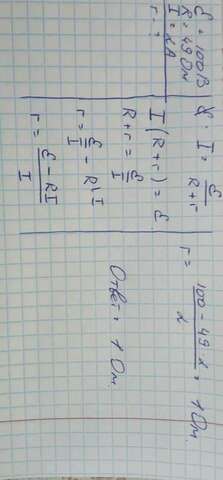 ℰ = 100 В
R = 49 Ом
I = 2 А
r - ?
I = ℰ / (R + r)
I (R + r) = ℰ
R + r = ℰ / I
r = ℰ / I - R \ · I
r = (ℰ - RI) / I
r = (100 - 49 · 2) / 2 = 1 Ом.
Ответ: 1 Ом.